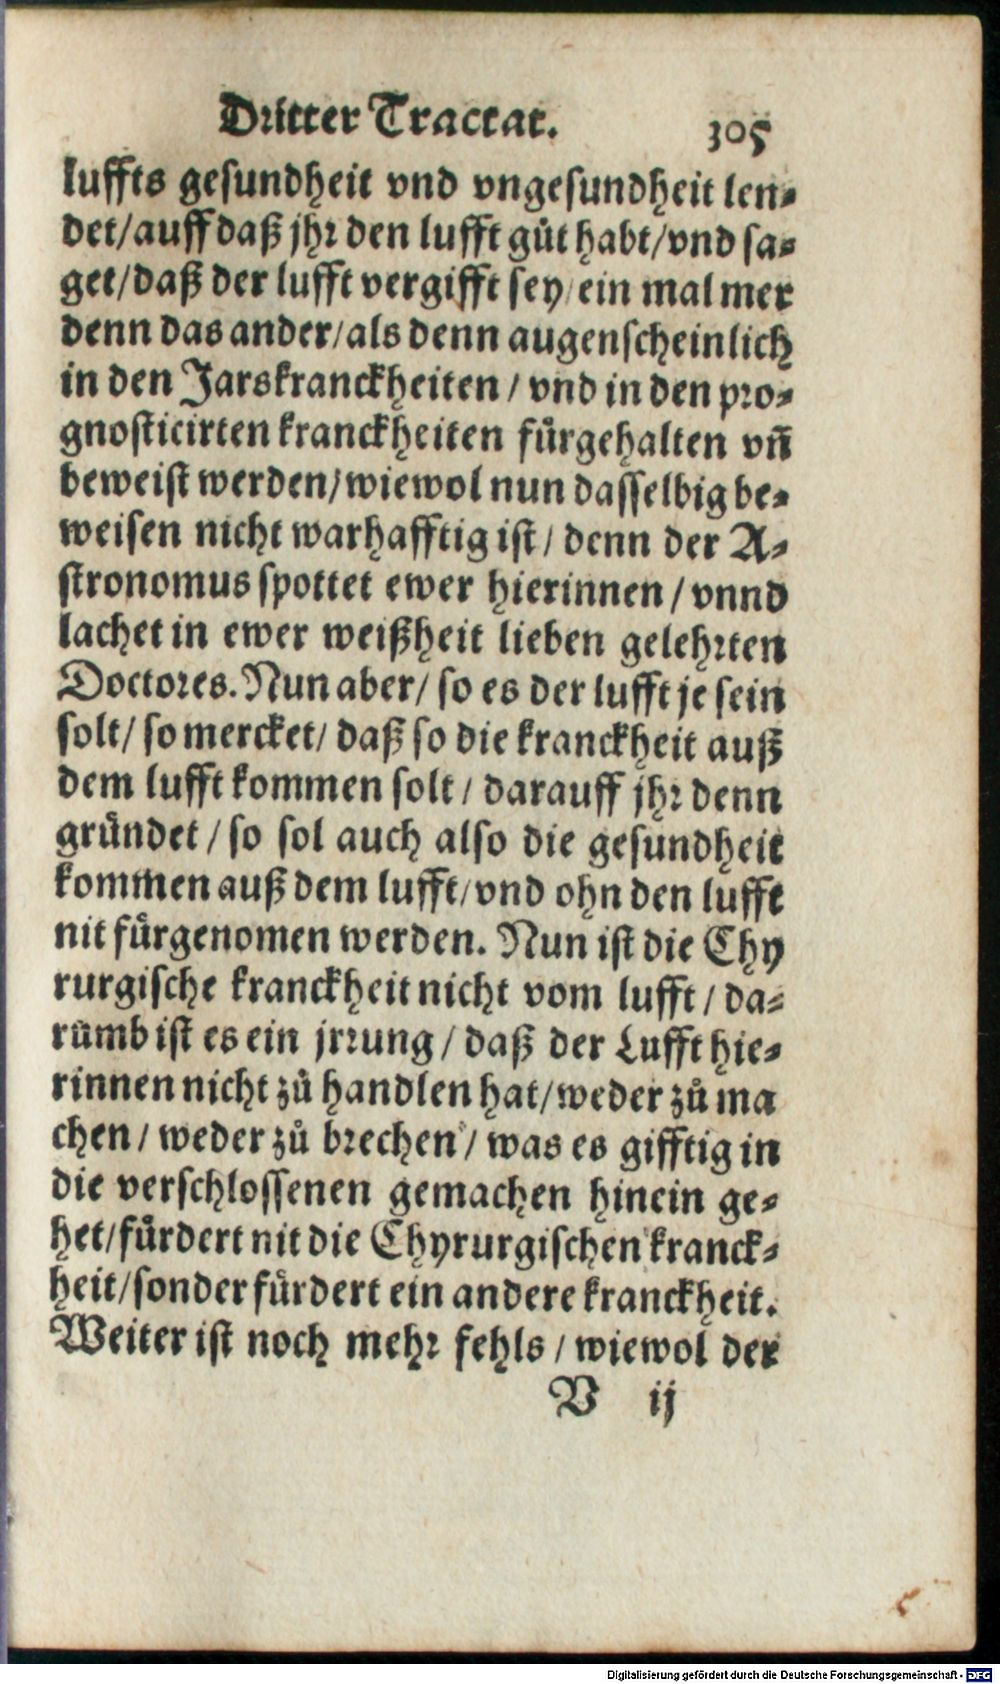 Dritter Tractat. 305
luffts gesundheit vnd vngesundheit len-
det/auff daß jhr den lufft gůt habt/vnd sa-
get/daß der lufft vergifft sey/ein mal mer
denn das ander/als denn augenscheinlich
in den Jarskranckheiten/vnd in den pro-
gnosticirten kranckheiten fürgehalten vñ
beweist werden/wiewol nun dasselbig be-
weisen nicht warhafftig ist/denn der A-
stronomus spottet ewer hierinnen/vnnd
lachet in ewer weißheit lieben gelehrten
Doctores. Nun aber/so es der lufft je sein
solt/so mercket/daß so die kranckheit auß
dem lufft kommen solt/darauff jhr denn
gründet/so sol auch also die gesundheit
kommen auß dem lufft/vnd ohn den lufft
nit fürgenomen werden. Nun ist die Chy
rurgische kranckheit nicht vom lufft/da-
rumb ist es ein jrrung/daß der Lufft hie-
rinnen nicht zů handlen hat/weder zů ma
chen/weder zů brechen/was es gifftig in
die verschlossenen gemachen hinein ge-
het/fürdert nit die Chyrurgischen kranck-
heit/sonder fürdert ein andere kranckheit.
Weiter ist noch mehr fehls/wiewol der
V ij
Digitalisierung gefördert durch die Deutsche Forschungsgemeinschaft - DFG